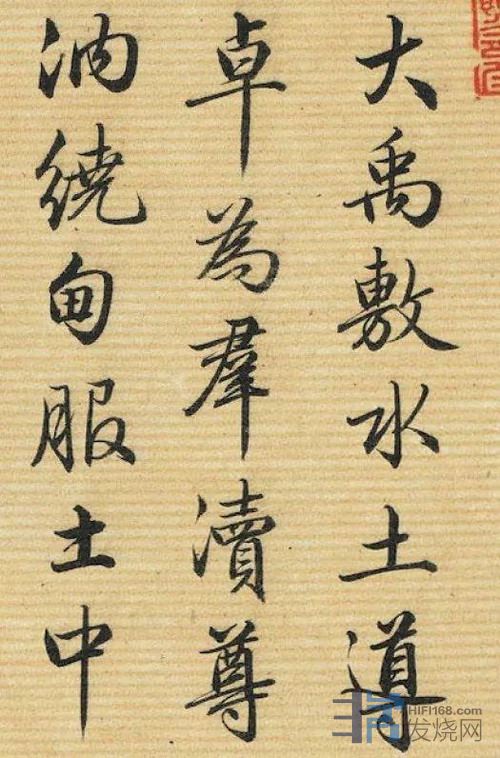 大禹敷水土導
卓為羣瀆尊
汭繞甸服土中
HIFI168.com
发烧网